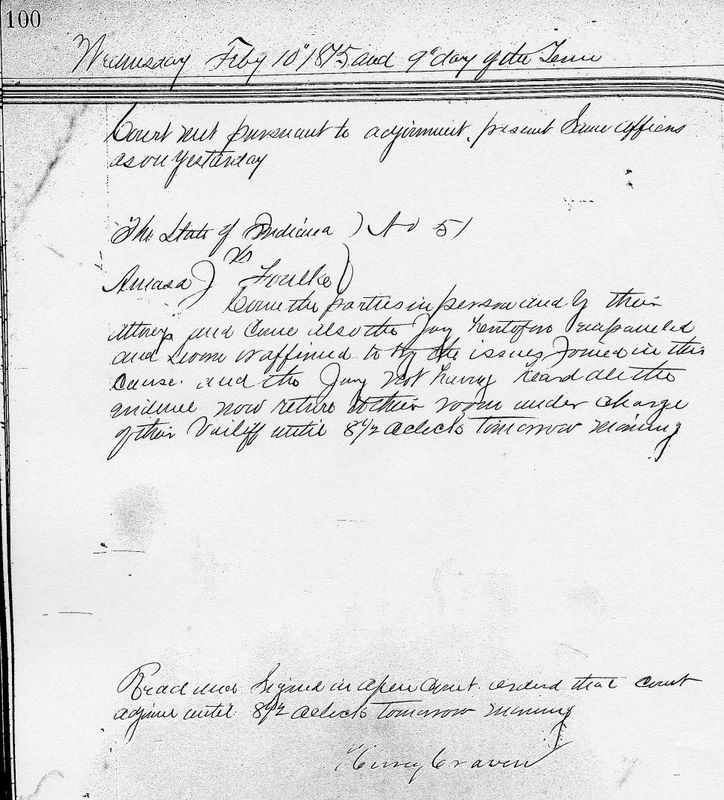 100
Wednesday Feby 10" 1875 and 9" day of the Term
Court met pursuant to adjirnment. present Same officers
as on Yesterday
The State of Indiana ) No 51
vs
Amasa J Foulke )
Come the parties in person and by their
attneys and Come also the Jury heretofore empaneled
and sworn or affirmed to try the issues Joined in this
Cause. and the Jury not having heard all the
evidence now return to their room under charge
of their Bailiff until 8 1/2 oclock tomorrow morning
Read and Signed in open Court. ordered that Court
adjirn until 8 1/2 oclock tomorrow morning
Henry Craven